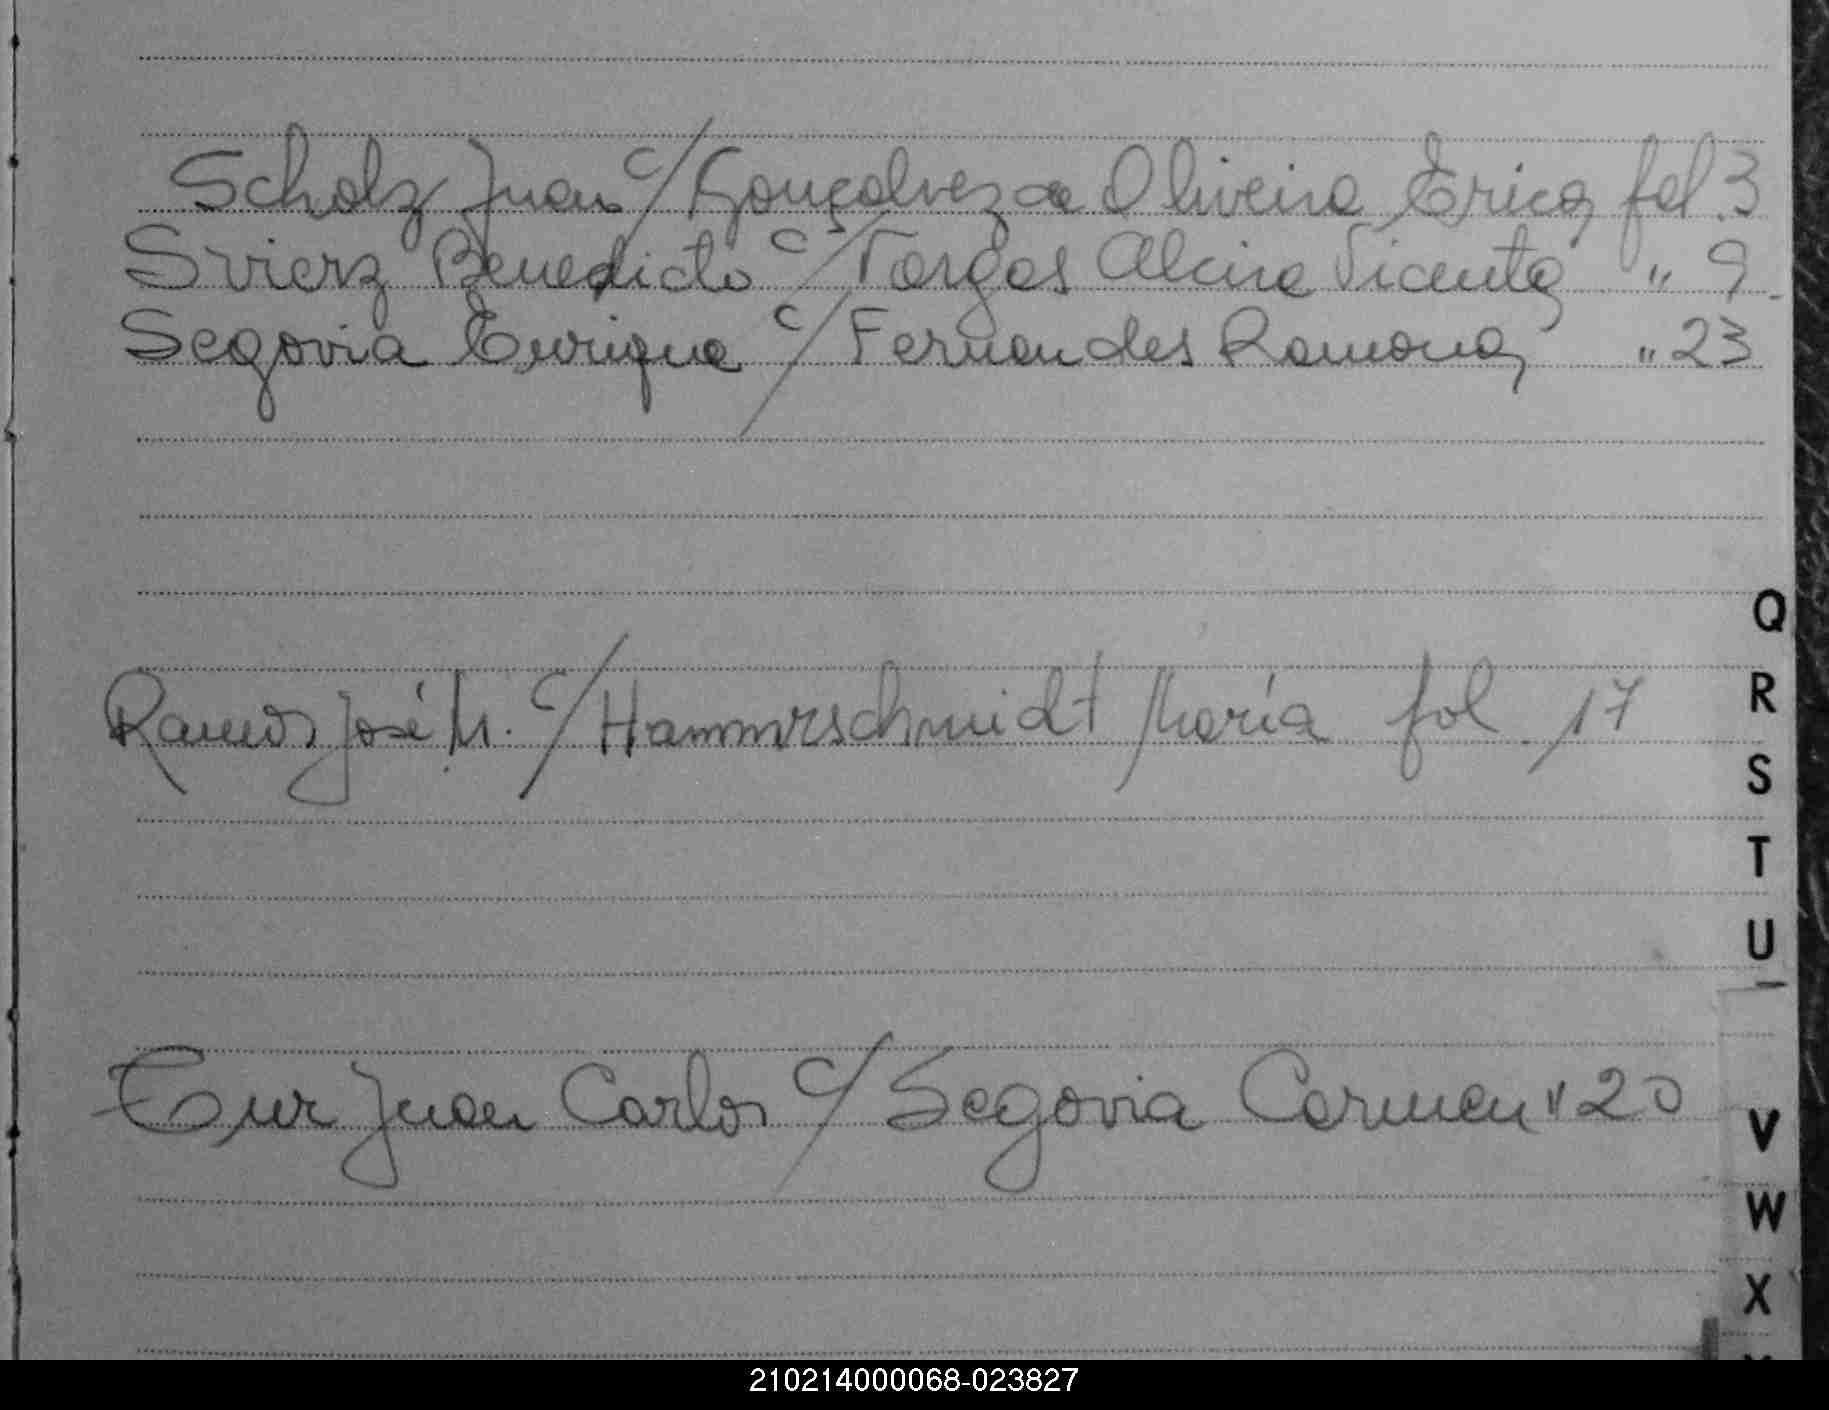 Scholz Juan c/ Gonçalvez de Oliveira Erica fol. 3
Svierz Benedicto c/ Vargas Alcira Vicenta " 9.
Segovia Enrique c/ Fernandes Ramona " 23
Q
Ramos José M. c/ Hammerschmidt María fol. 17
R
S
T
U
Tur Juan Carlos c/ Segovia Carmen " 20
V
W
X
210214000068-023827